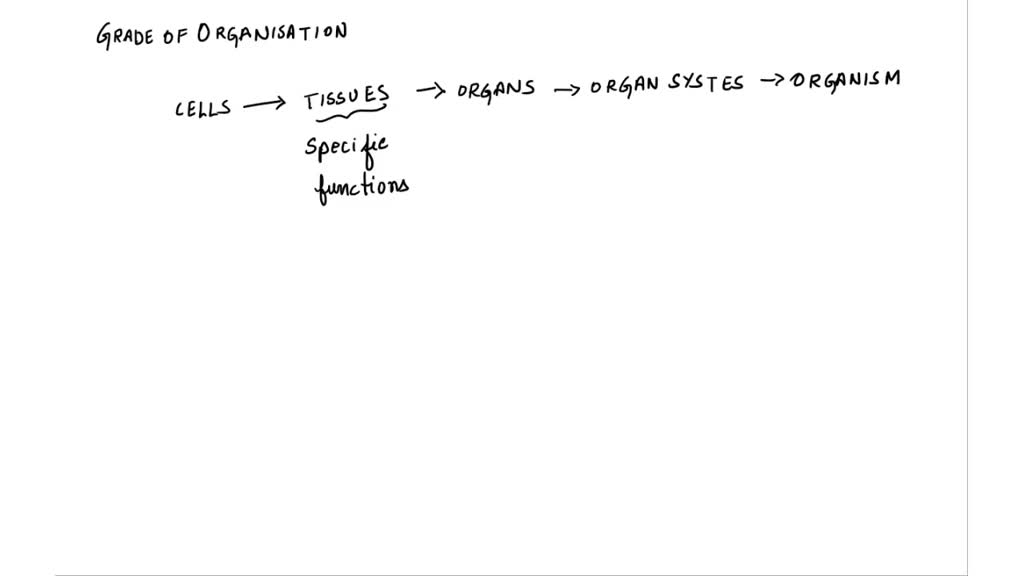 GRADE OF ORGANISATION
CELLS → TISSUES → ORGANS → ORGAN SYSTES → ORGANISM
specific
functions